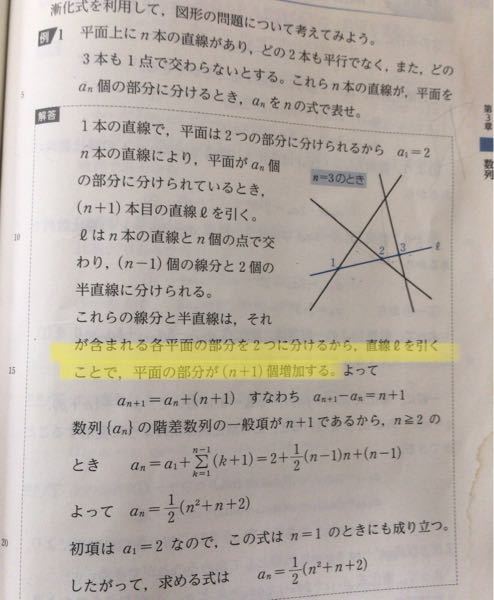 漸化式を利用して，図形の問題について考えてみよう。
例 1 平面上に n 本の直線があり，どの2本も平行でなく，また，どの
3本も1点で交わらないとする。これら n 本の直線が，平面を
5
aₙ 個の部分に分けるとき，aₙ を n の式で表せ。
第3章
数列
解答
1本の直線で，平面は2つの部分に分けられるから a₁=2
n 本の直線により，平面が aₙ 個
の部分に分けられているとき，
n=3のとき
(n+1) 本目の直線 ℓ を引く。
10
ℓ は n 本の直線と n 個の点で交
わり，(n−1) 個の線分と2個の
半直線に分けられる。
1 2 3 ℓ
これらの線分と半直線は，それ
が含まれる各平面の部分を2つに分けるから，直線 ℓ を引く
15
ことで，平面の部分が (n+1) 個増加する。よって
aₙ₊₁=aₙ+(n+1) すなわち aₙ₊₁−aₙ=n+1
数列 {aₙ} の階差数列の一般項が n+1 であるから，n≧2 の
とき aₙ=a₁+∑_{k=1}^{n−1}(k+1)=2+1/2(n−1)n+(n−1)
よって aₙ=1/2(n²+n+2)
20
初項は a₁=2 なので，この式は n=1 のときにも成り立つ。
したがって，求める式は aₙ=1/2(n²+n+2)